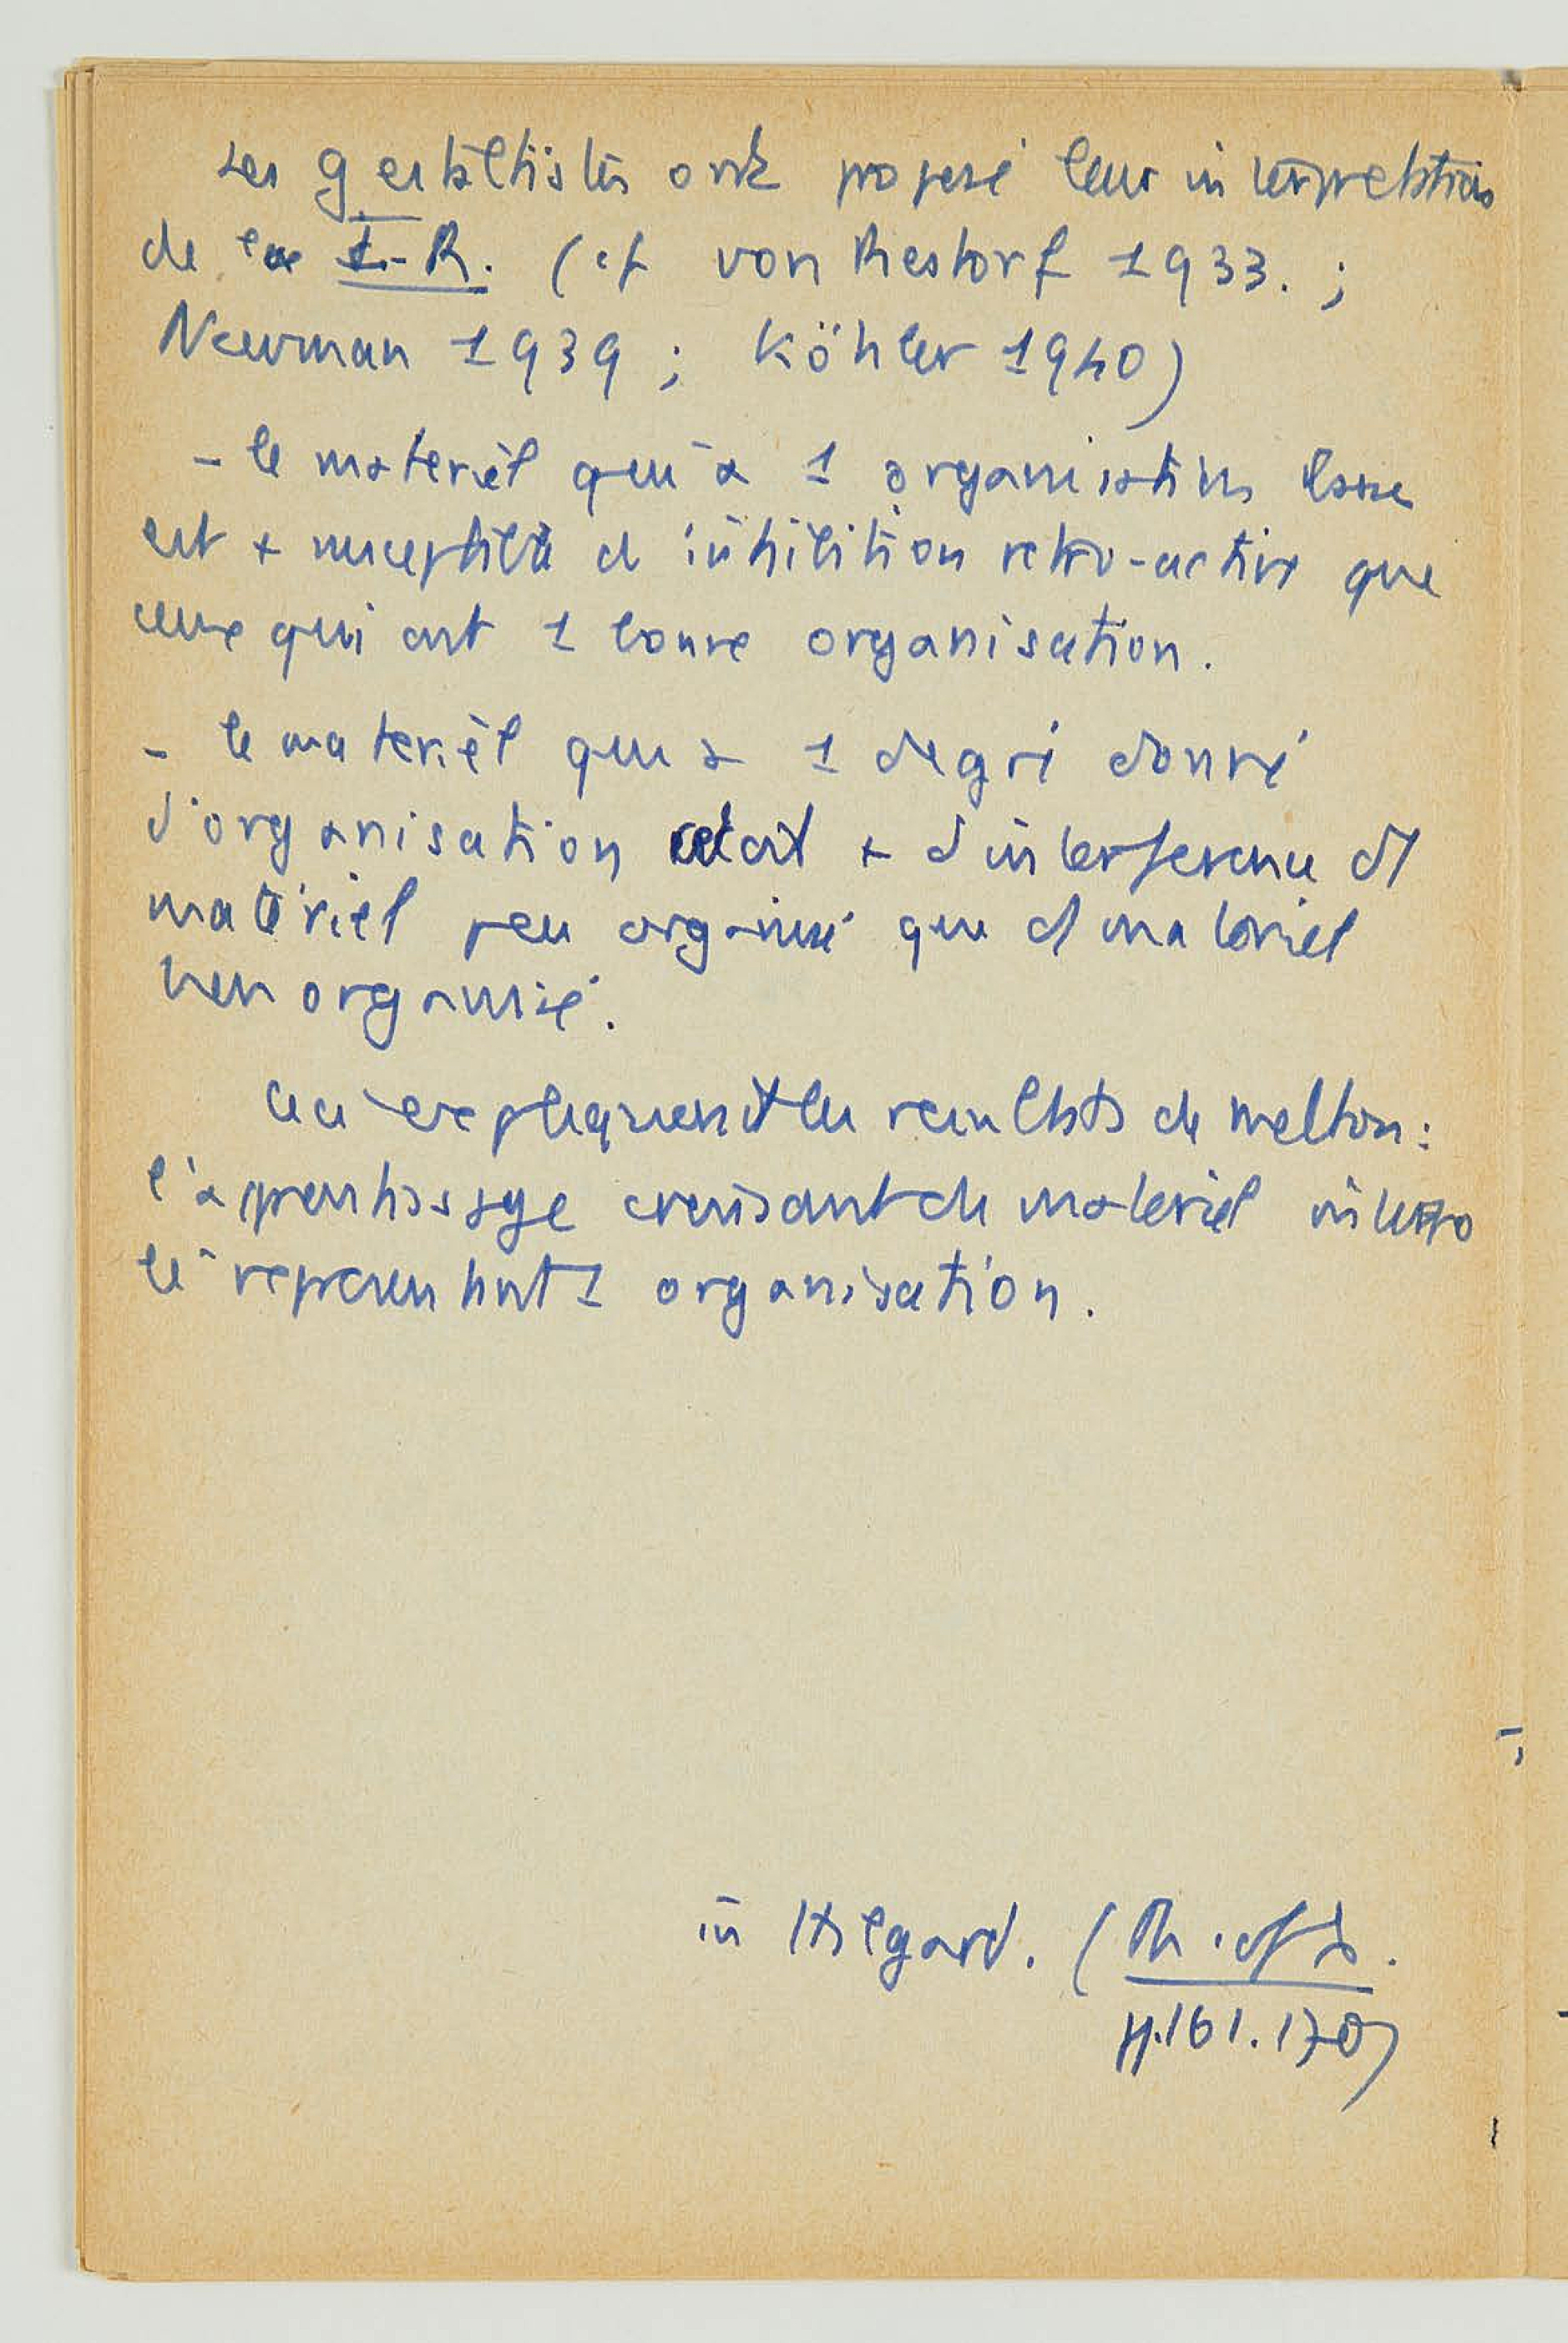 Les gestaltistes ont proposé leur interprétation
de la I-R. (cf von Restorf 1933. ;
Newman 1939 ; Köhler 1940)
- le matériel qui a 1 organisation basse
est + susceptible d inhibition retro-active que
ceux qui ont 1 bonne organisation.
- le matériel qui a 1 degré donné
d'organisation + d'interference de
matériel peu organisé que d matériel
bien organisé.
Ceci expliquerait les resultats de Melton :
l'apprentissage croissant du materiel interpo
lé representant 1 organisation.
in Hilgard. (Th. of L.
p. 161. 170)